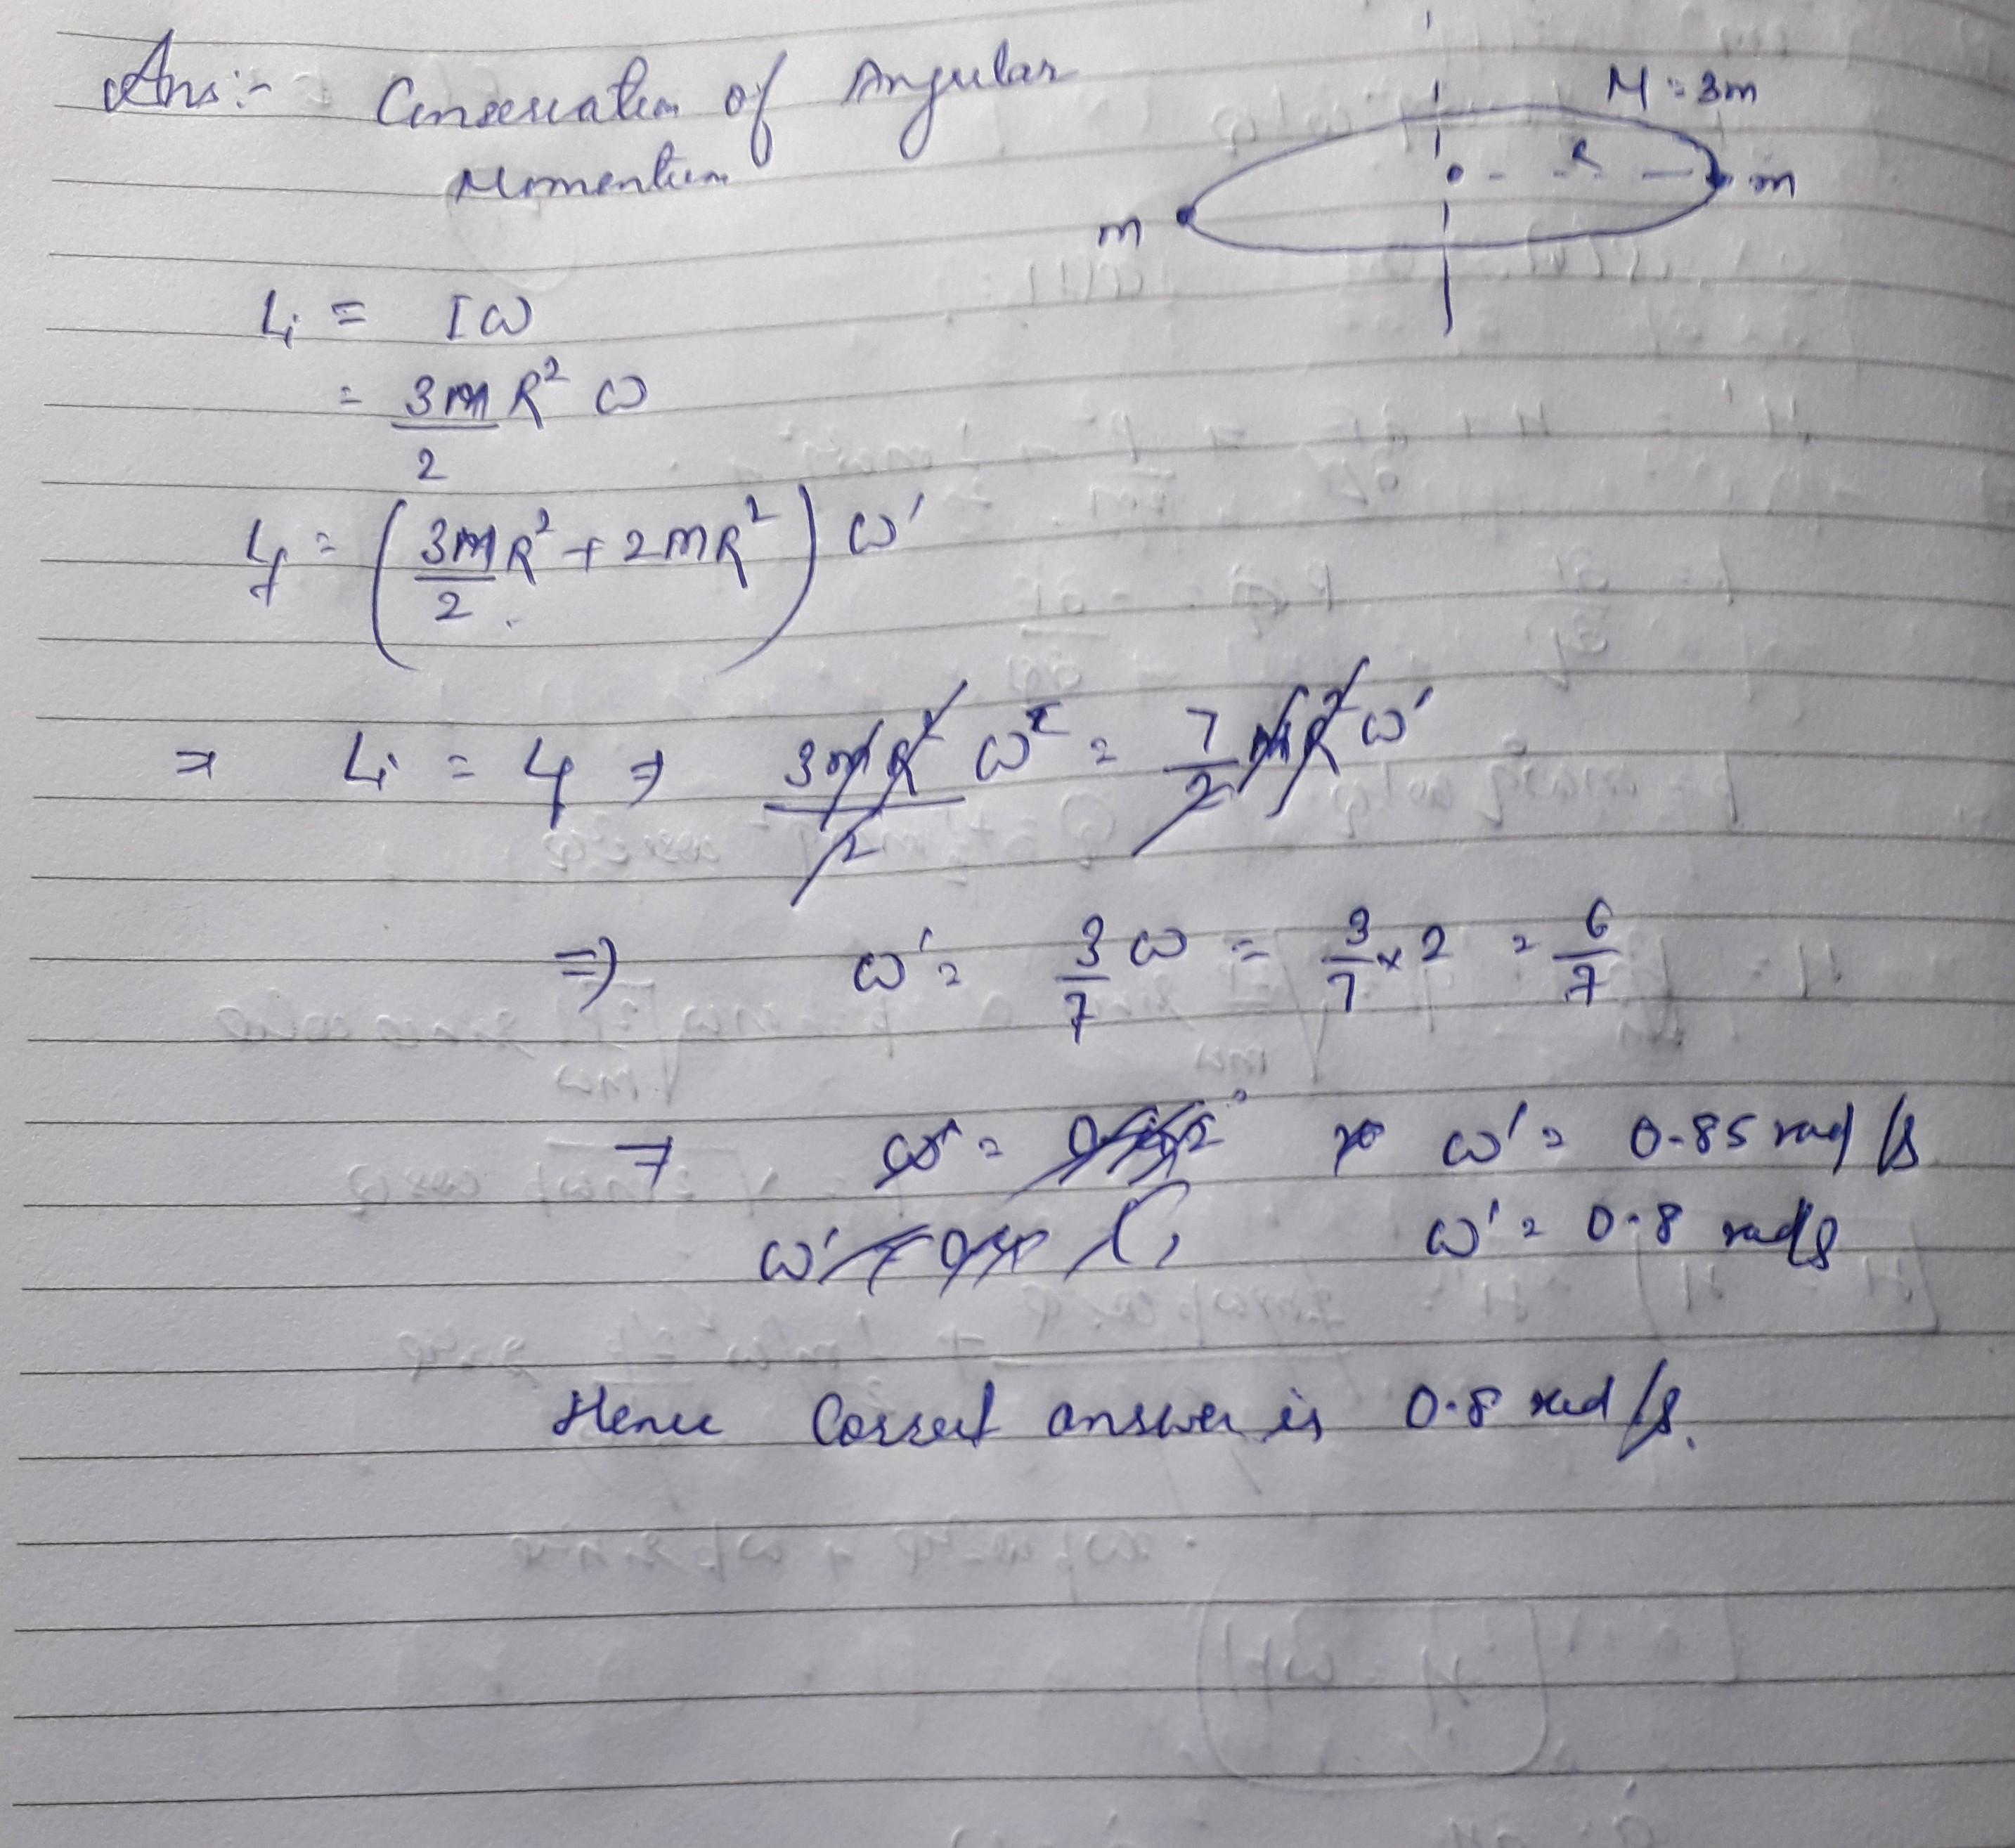 Ans:- Conservation of Angular
Momentum
M = 3m
R
m
m
Li = Iω
= 3m/2 R² ω
Lf = (3m/2 R² + 2mR²) ω'
⇒ Li = Lf ⇒ 3mR²/2 ω = 7/2 mR² ω'
⇒ ω' = 3/7 ω = 3/7 × 2 = 6/7
⇒ ω' = 0.85 rad/s
ω' = 0.8 rad/s
Hence Correct answer is 0.8 rad/s.